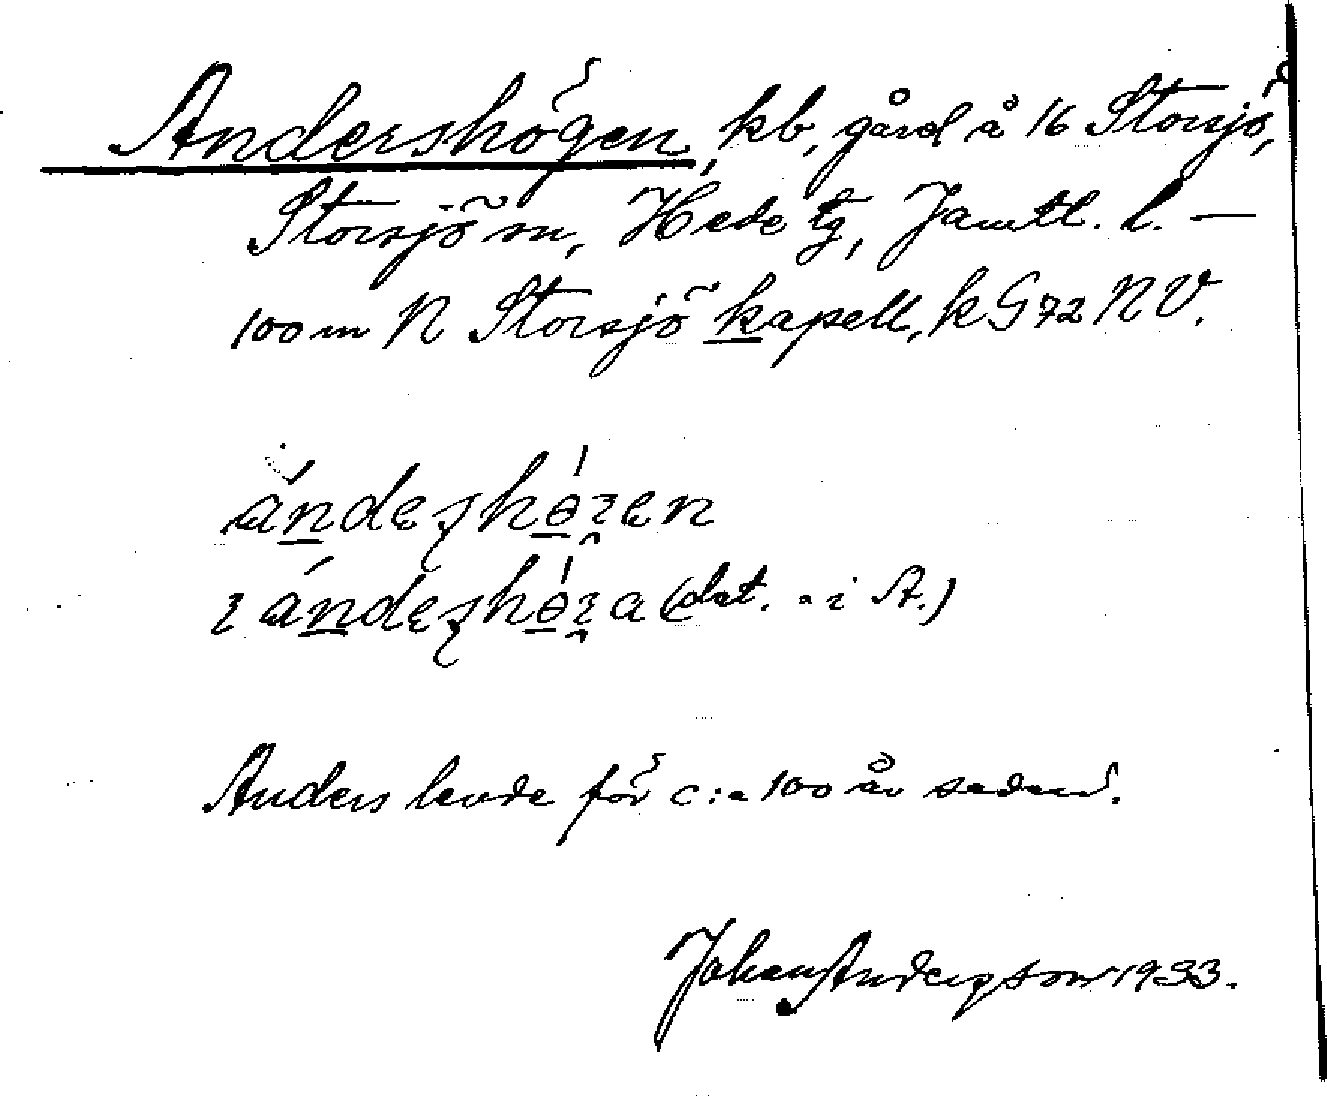 Andershögen, kb, gård å 16 Storsjö,
Storsjö sn, Hede tg, Jämtl. l. —
100 m N Storsjö kapell, k G 72 NV.
Anders levde för c:a 100 år sedan.
Johan Andersson 1933.